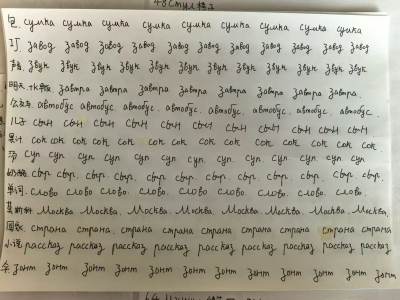 48 стул 椅子
包 сумка сумка сумка сумка сумка сумка сумка сумка сумка
工厂 завод завод завод завод завод завод завод завод завод
声音 звук звук звук звук звук звук звук звук звук звук звук звук
明天 завтра завтра завтра завтра завтра завтра завтра
公交车 автобус автобус автобус. автобус. автобус. автобус. автобус.
儿子 сын сын сын сын сын сын сын сын сын
果汁 сок сок сок сок сок сок сок сок сок сок сок
汤 суп суп суп суп суп суп суп суп суп суп суп
奶酪 сыр. сыр. сыр. сыр. сыр. сыр. сыр. сыр. сыр. сыр.
单词. слово слово слово. слово. слово. слово. слово. слово
莫斯科 Москва Москва. Москва. Москва. Москва. Москва. Москва.
国家. страна страна страна страна страна страна страна страна страна
小说 рассказ рассказ рассказ рассказ рассказ рассказ рассказ рассказ
伞 зонт зонт зонт зонт зонт зонт зонт зонт зонт зонт